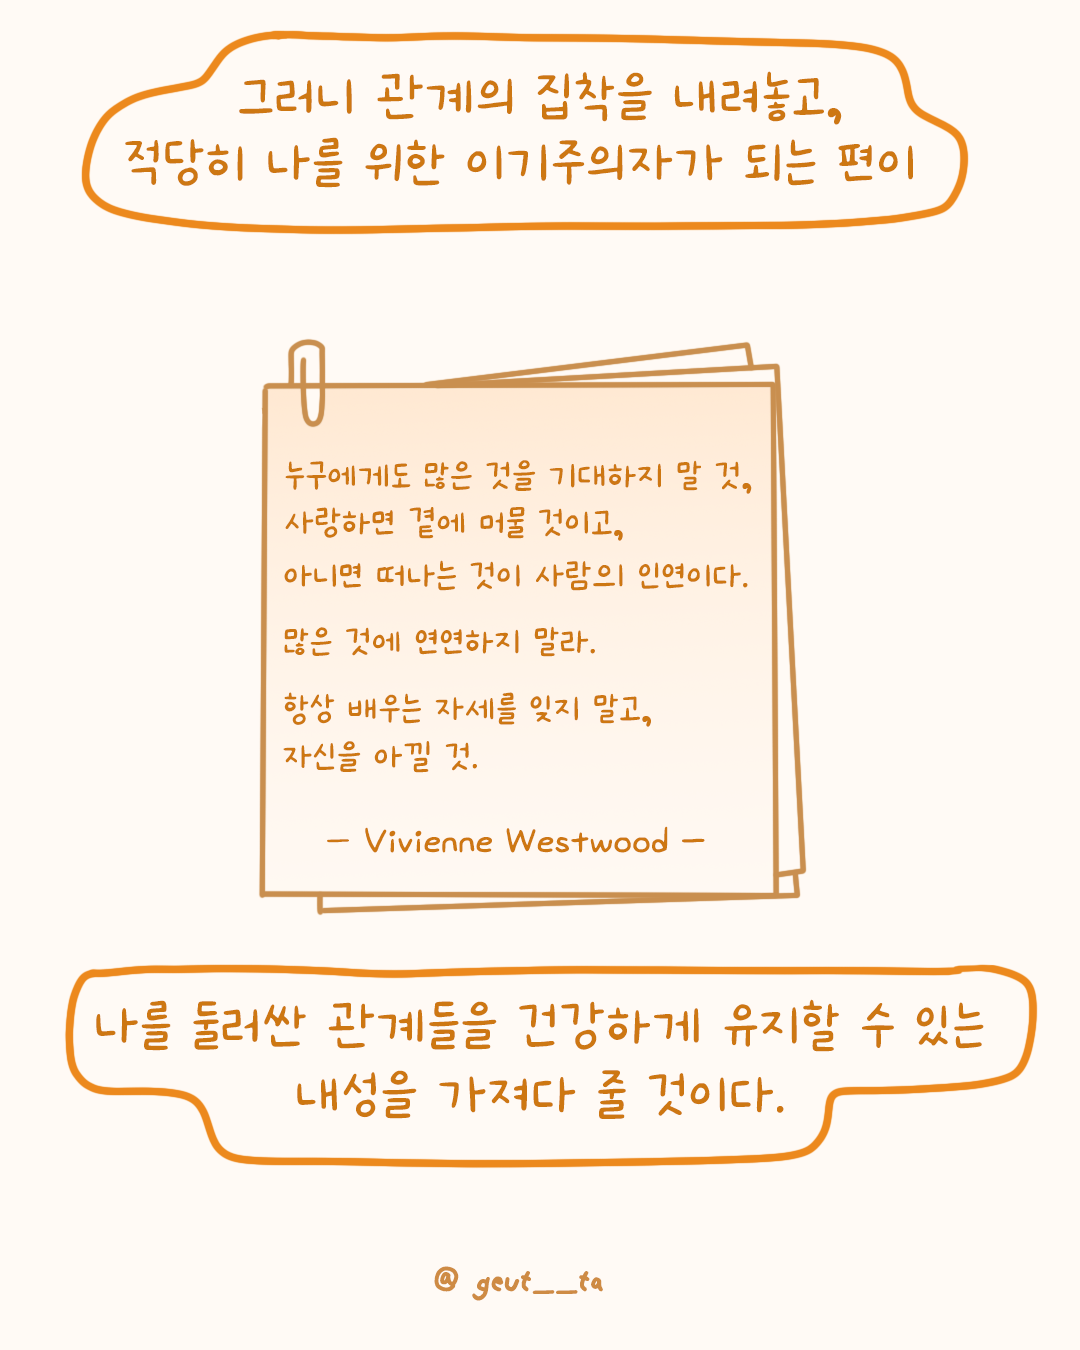 그러니 관계의 집착을 내려놓고,
적당히 나를 위한 이기주의자가 되는 편이
누구에게도 많은 것을 기대하지 말 것,
사랑하면 곁에 머물 것이고,
아니면 떠나는 것이 사람의 인연이다.
많은 것에 연연하지 말라.
항상 배우는 자세를 잊지 말고,
자신을 아낄 것.
- Vivienne Westwood -
나를 둘러싼 관계들을 건강하게 유지할 수 있는
내성을 가져다 줄 것이다.
@ geut__ta